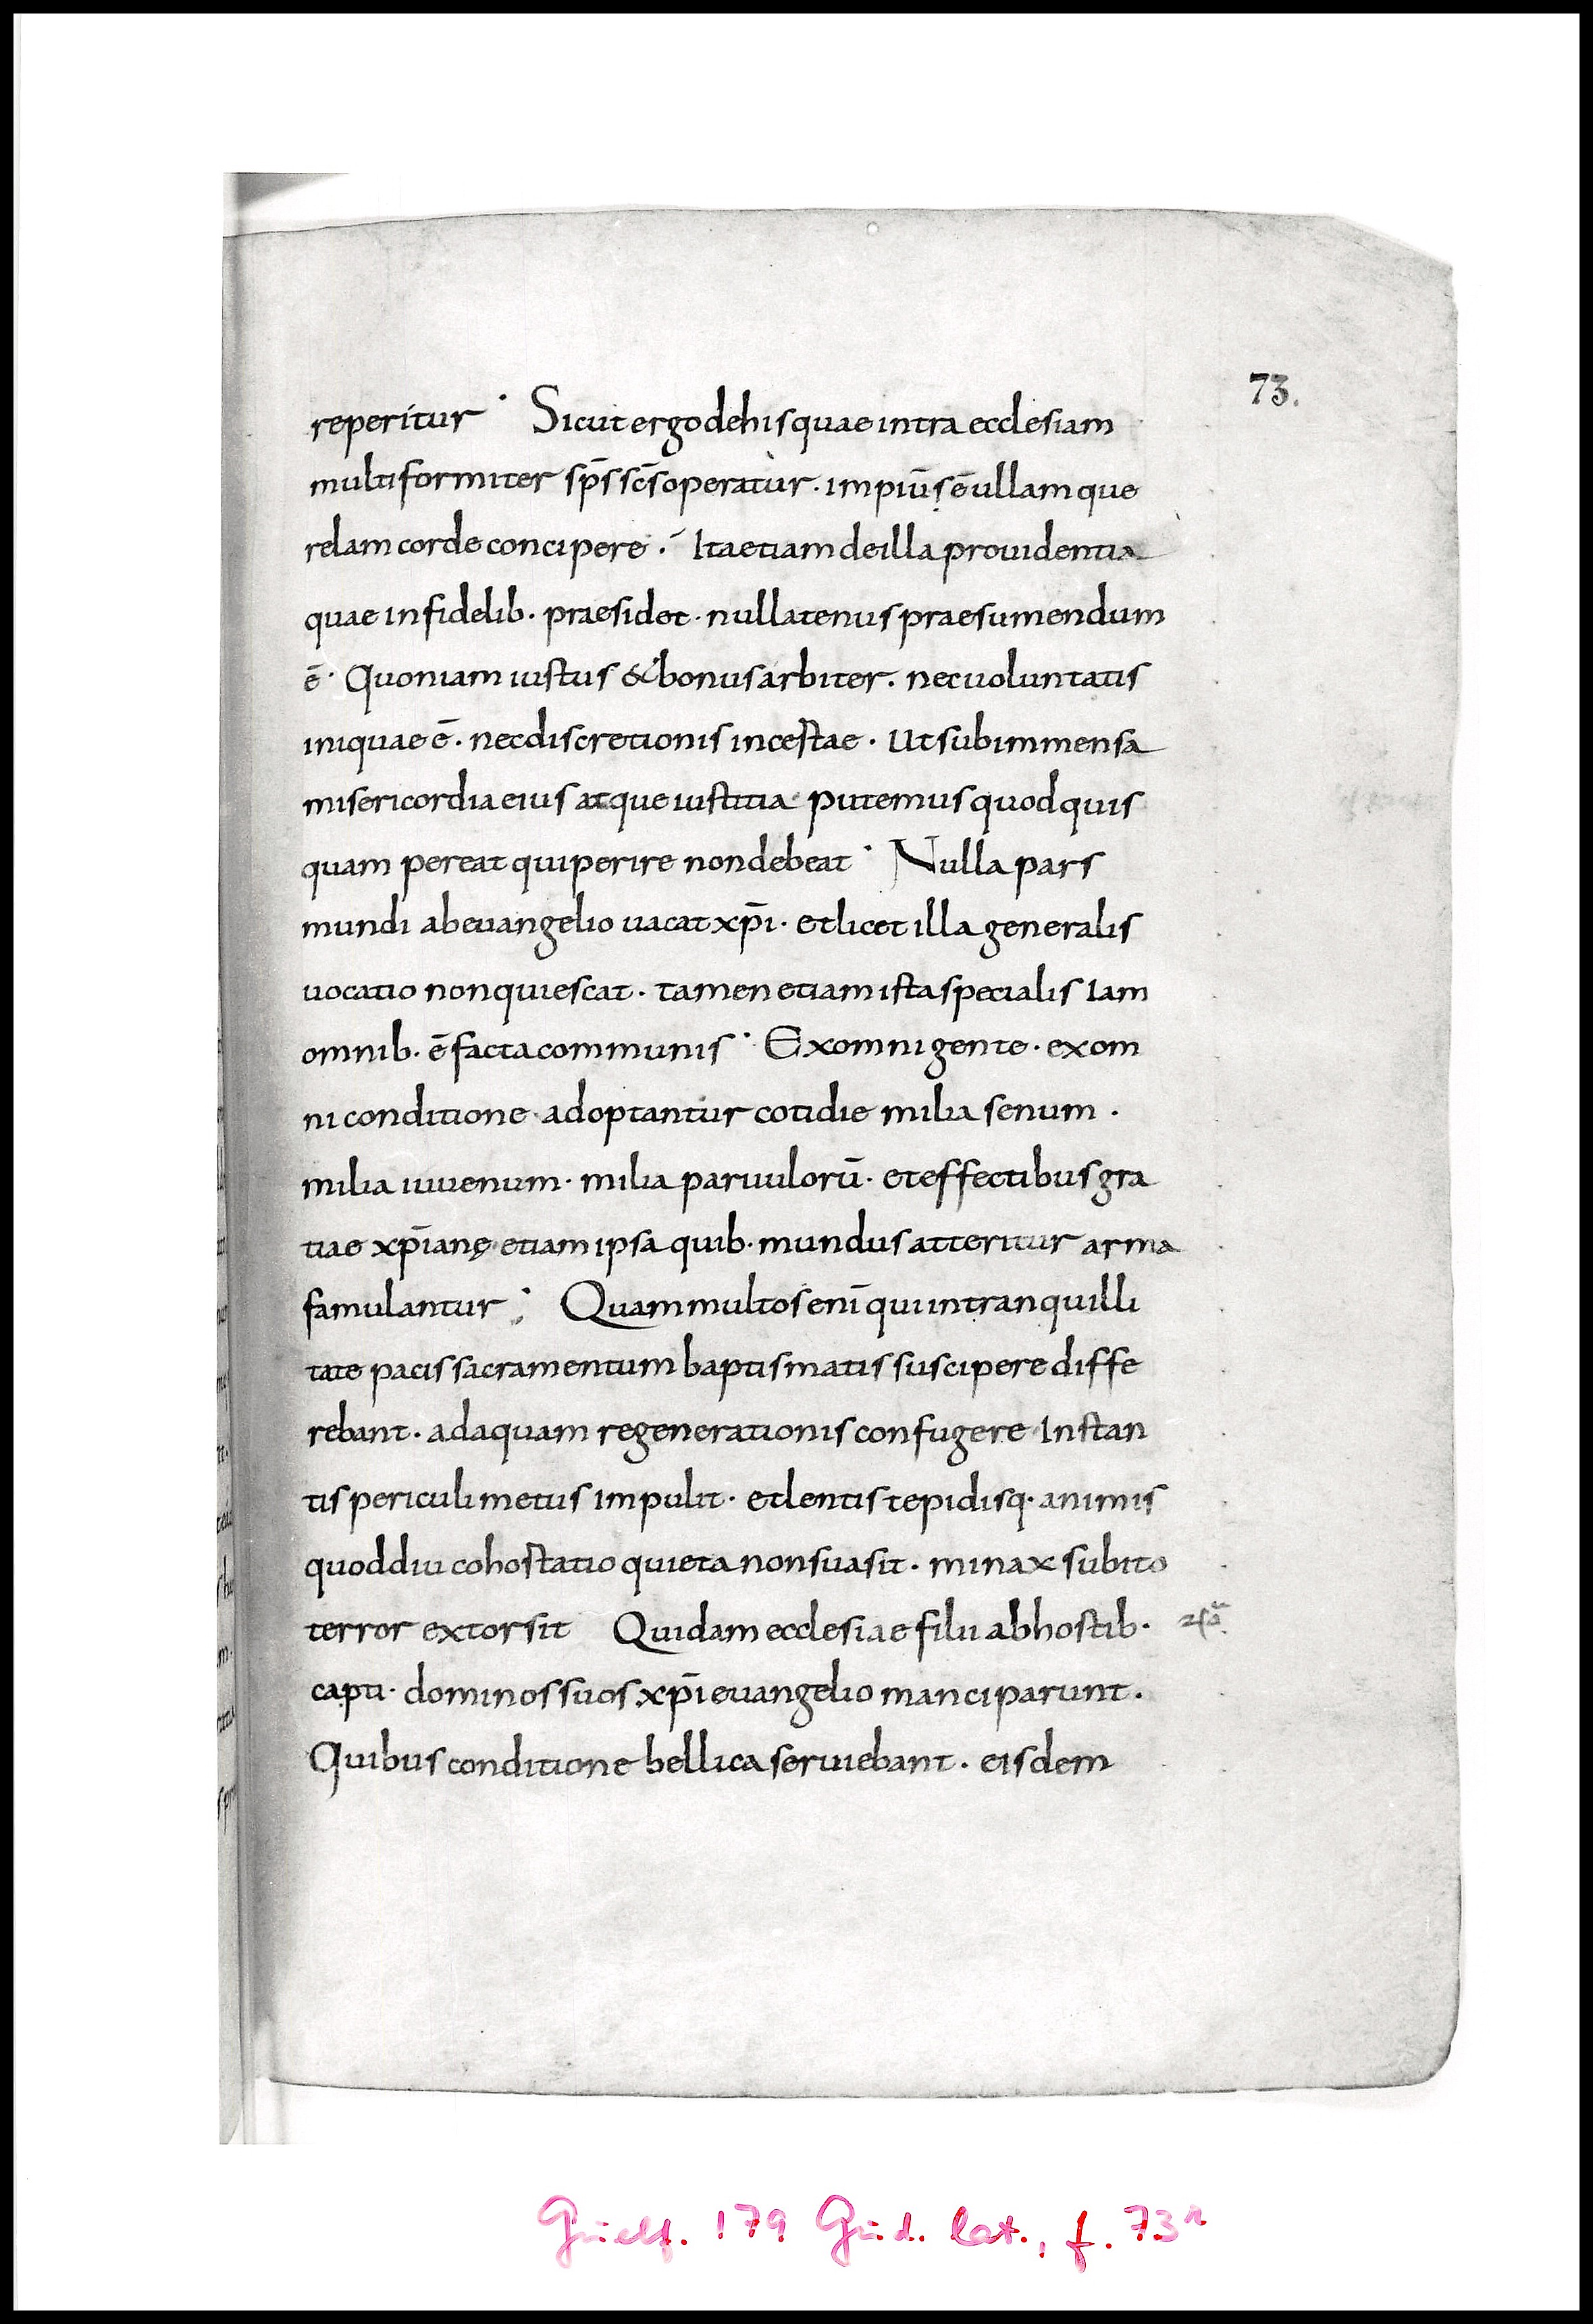 73.
reperitur · Sicut ergo de his quae intra ecclesiam
multiformiter sp̄s sc̄s operatur · impiū ē ullam que
relam corde concipere · Ita etiam de illa prouidentia
quae infidelib · praesidet · nullatenus praesumendum
ē · Quoniam iustus & bonus arbiter · nec uoluntatis
iniquae ē · nec discretionis incestae · Ut sub immensa
misericordia eius atque iustitia · putemus quod quis
quam pereat qui perire non debeat · Nulla pars
mundi ab euangelio uacat xp̄i · et licet illa generalis
uocatio non quiescat · tamen etiam ista specialis Iam
omnib · ē facta communis · Ex omni gente · ex om
ni conditione · adoptantur cotidie milia senum ·
milia iuuenum · milia paruulorū · et effectibus gra
tiae xp̄ianę · etiam ipsa quib · mundus atteritur arma
famulantur ; Quam multos enī qui in tranquilli
tate pacis sacramentum baptismatis suscipere diffe
rebant · ad aquam regenerationis confugere Instan
tis periculi metus impulit · et lentis tepidisq · animis
quod diu cohostatio quieta non suasit · minax subito
terror extorsit Quidam ecclesiae filii ab hostib ·
capti · dominos suos xp̄i euangelio manciparunt ·
Quibus conditione bellica seruiebant · eisdem
Guelf. 179 Gud. lat., f. 73r